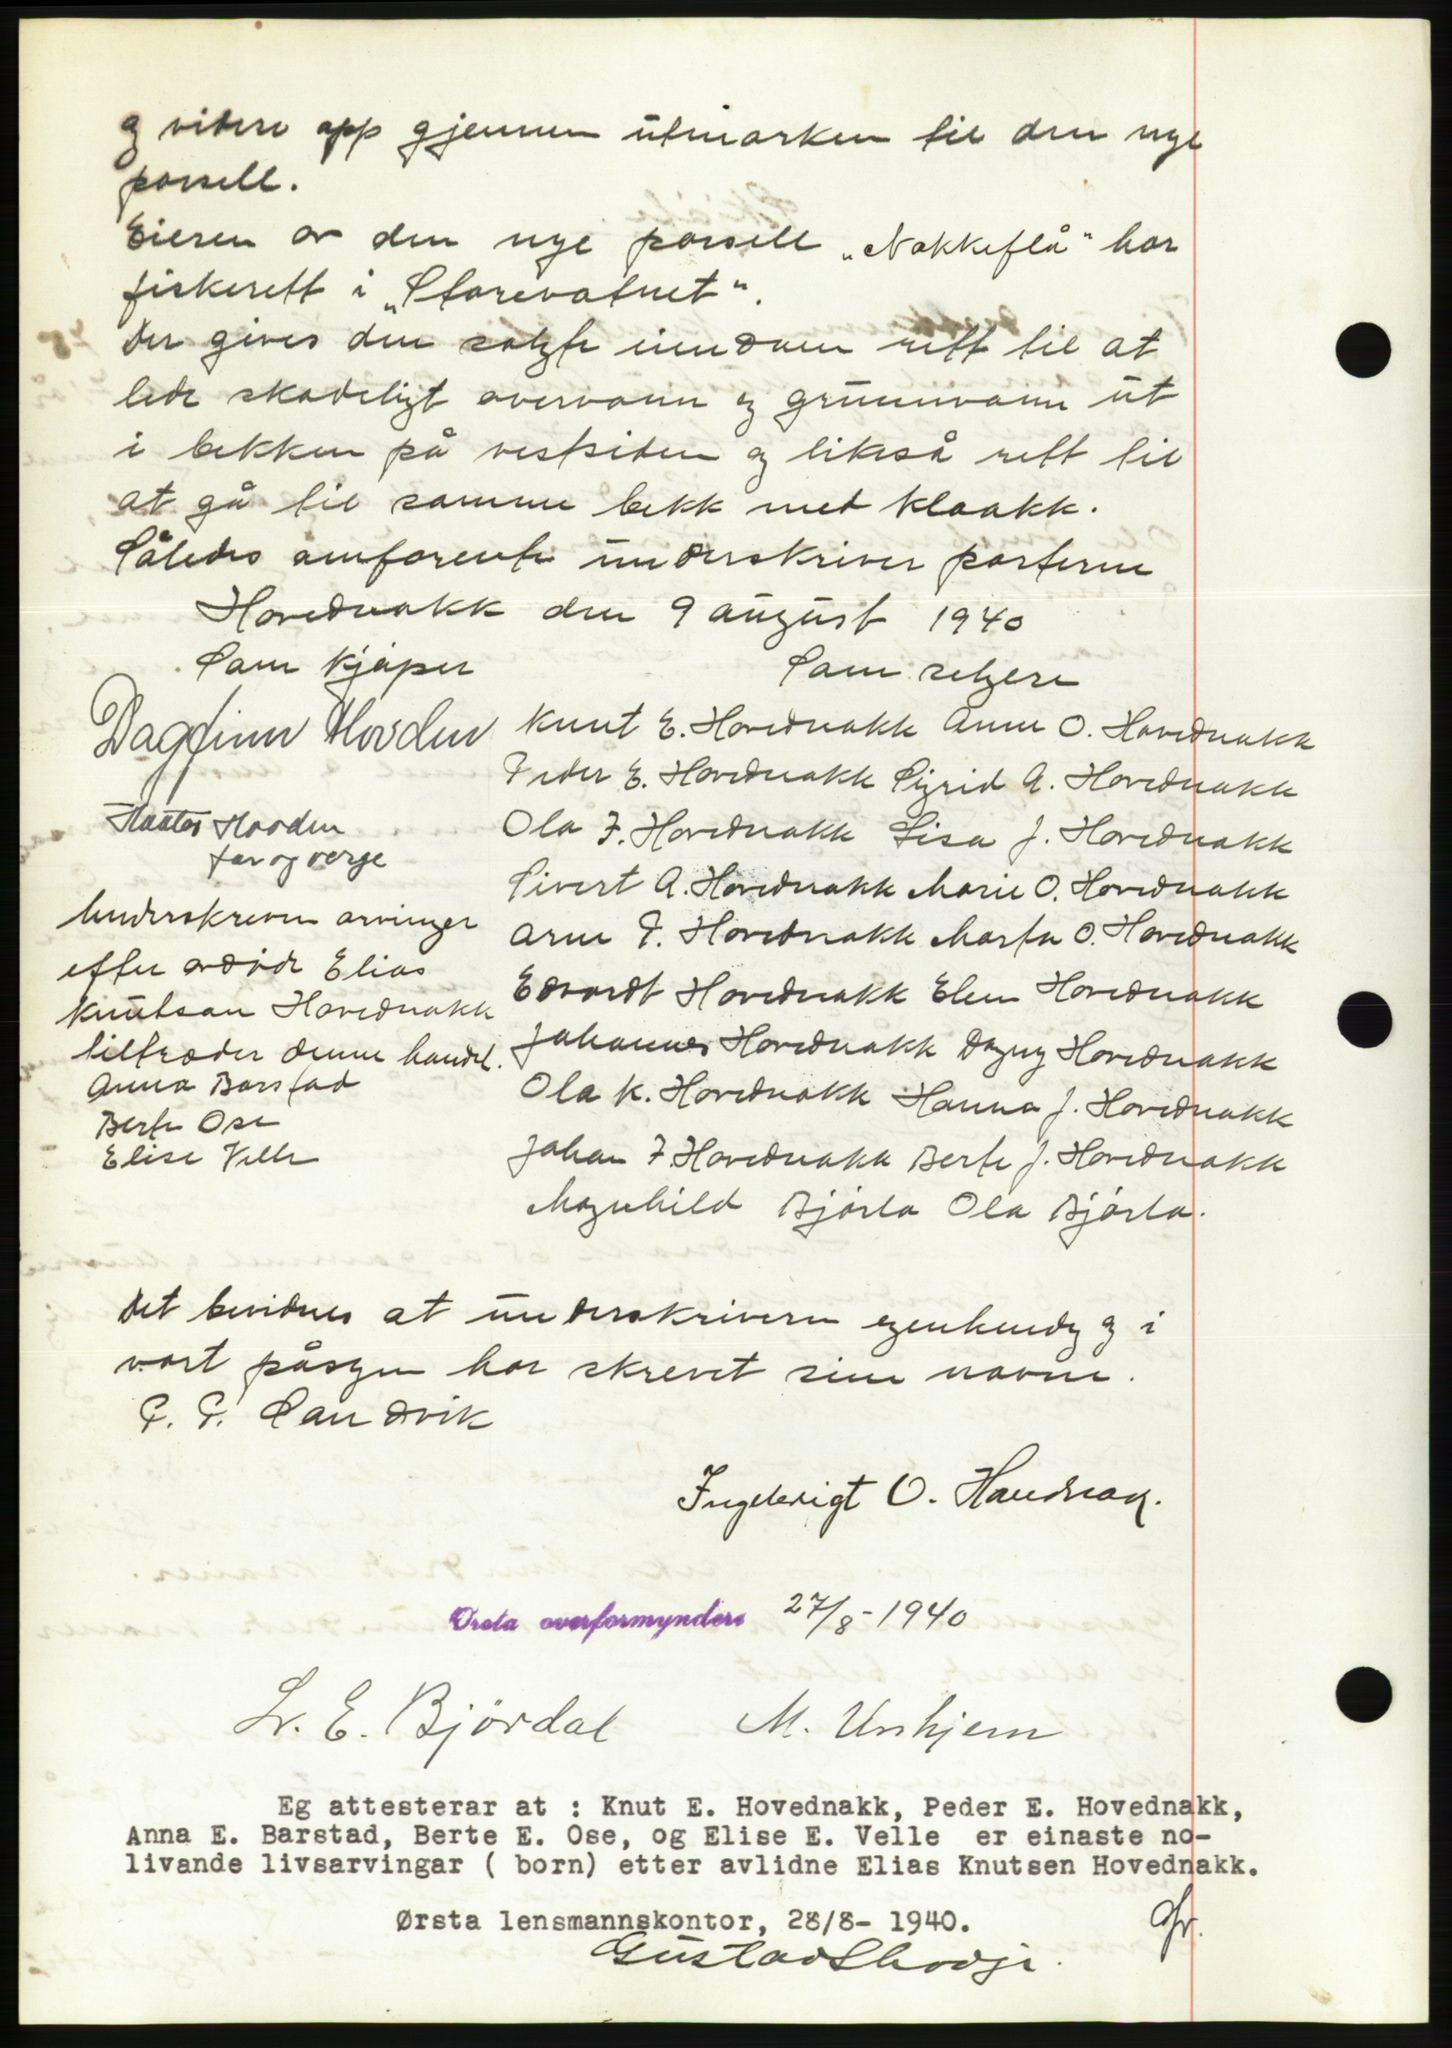 og videre opp gjennem utmarken til den nye
parsell.
Eieren av den nye parsell „Nakkeflå" har
fiskerett i „Storevatnet".
Der gives den solgte eiendom rett til at
lede skadeligt overvann og grunnvann ut
i bekken på vestsiden og likeså rett til
at gå til samme bekk med kloakk.
Således omforente underskriver parterne
Hovednakk den 9 august 1940
Som kjøper Som selgere
Dagfinn Hovden
Knut E. Hovednakk Anne O. Hovednakk
Peder E. Hovednakk Sigrid A. Hovednakk
Hovden
far og verge
Ola P. Hovednakk Lisa J. Hovednakk
Sivert A. Hovednakk Marie O. Hovednakk
Arne P. Hovednakk Marta O. Hovednakk
Edvardt Hovednakk Elen Hovednakk
Johannes Hovednakk Dagny Hovednakk
Ola K. Hovednakk Hanna J. Hovednakk
Johan P. Hovednakk Berte J. Hovednakk
Magnhild Bjørla Ola Bjørla.
Underskrevne arvinger
efter avdøde Elias
Knutsen Hovednakk
tiltræder denne handel.
Anna Barstad
Berte Ose
Elise Velle
Det bevidnes at underskriverne egenhendig og i
vort påsyn har skrevet sine navne.
P. P. Sandvik
Ingebrigt O. Hovdnak.
Ørsta overformynderi 27/8-1940
Lr. E. Bjørdal M. Urkjem
Eg attesterar at : Knut E. Hovednakk, Peder E. Hovednakk,
Anna E. Barstad, Berte E. Ose, og Elise E. Velle er einaste no-
livande livsarvingar ( born) etter avlidne Elias Knutsen Hovednakk.
Ørsta lensmannskontor, 28/8- 1940.
Gustav Skodje.